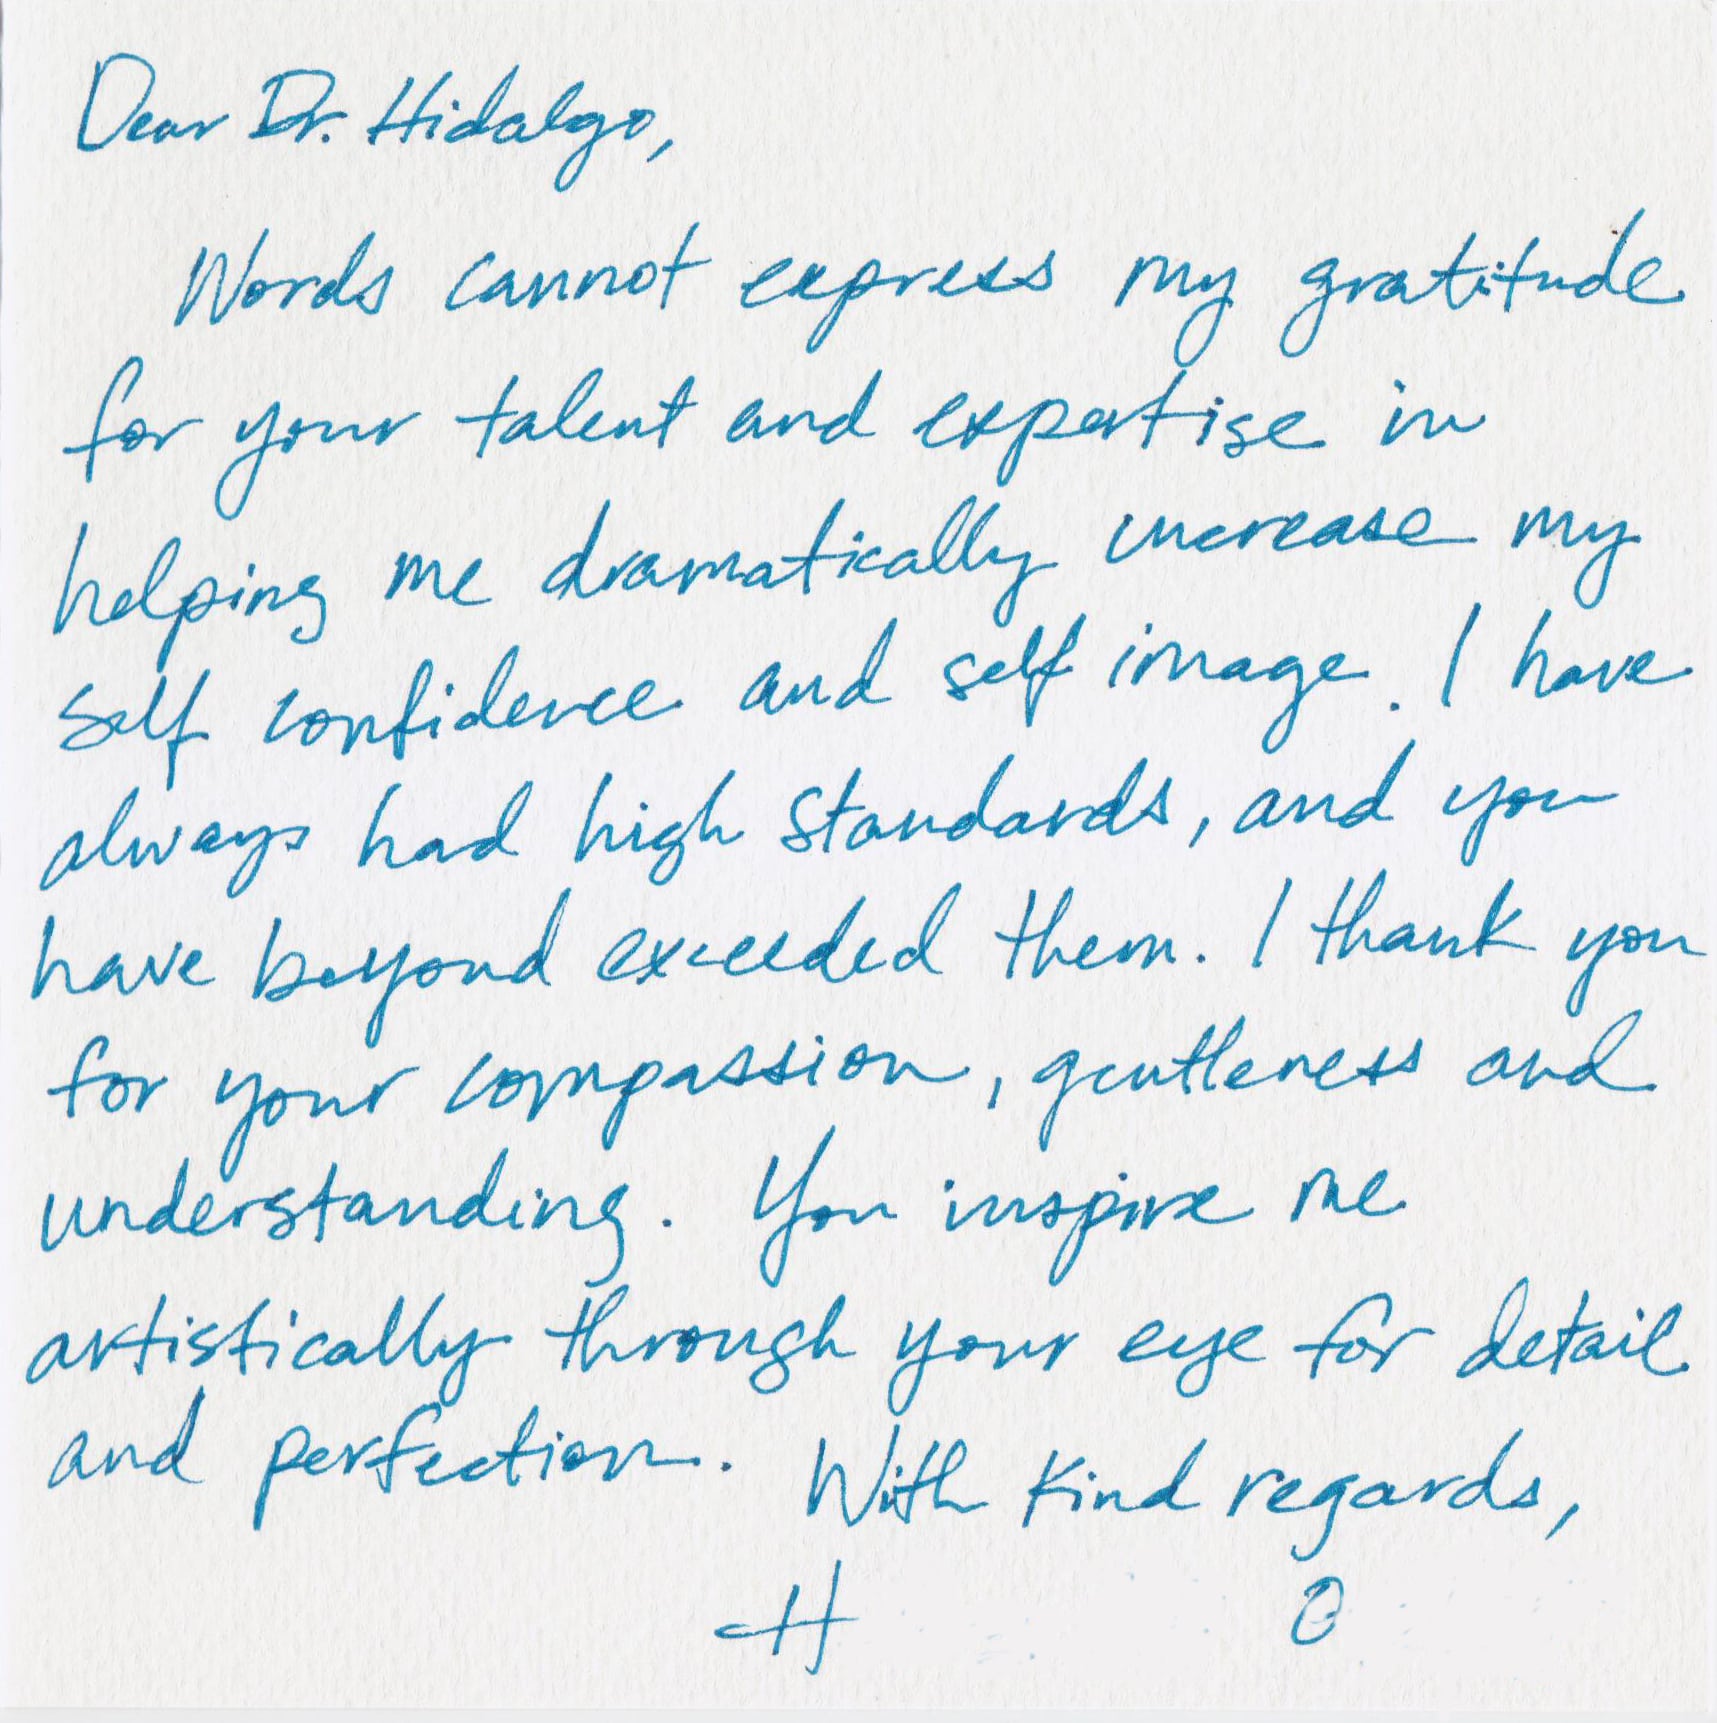 Dear Dr. Hidalgo,
Words cannot express my gratitude
for your talent and expertise in
helping me dramatically increase my
self confidence and self image. I have
always had high standards, and you
have beyond exceeded them. I thank you
for your compassion, gentleness and
understanding. You inspire me
artistically through your eye for detail
and perfection. With kind regards,
H O